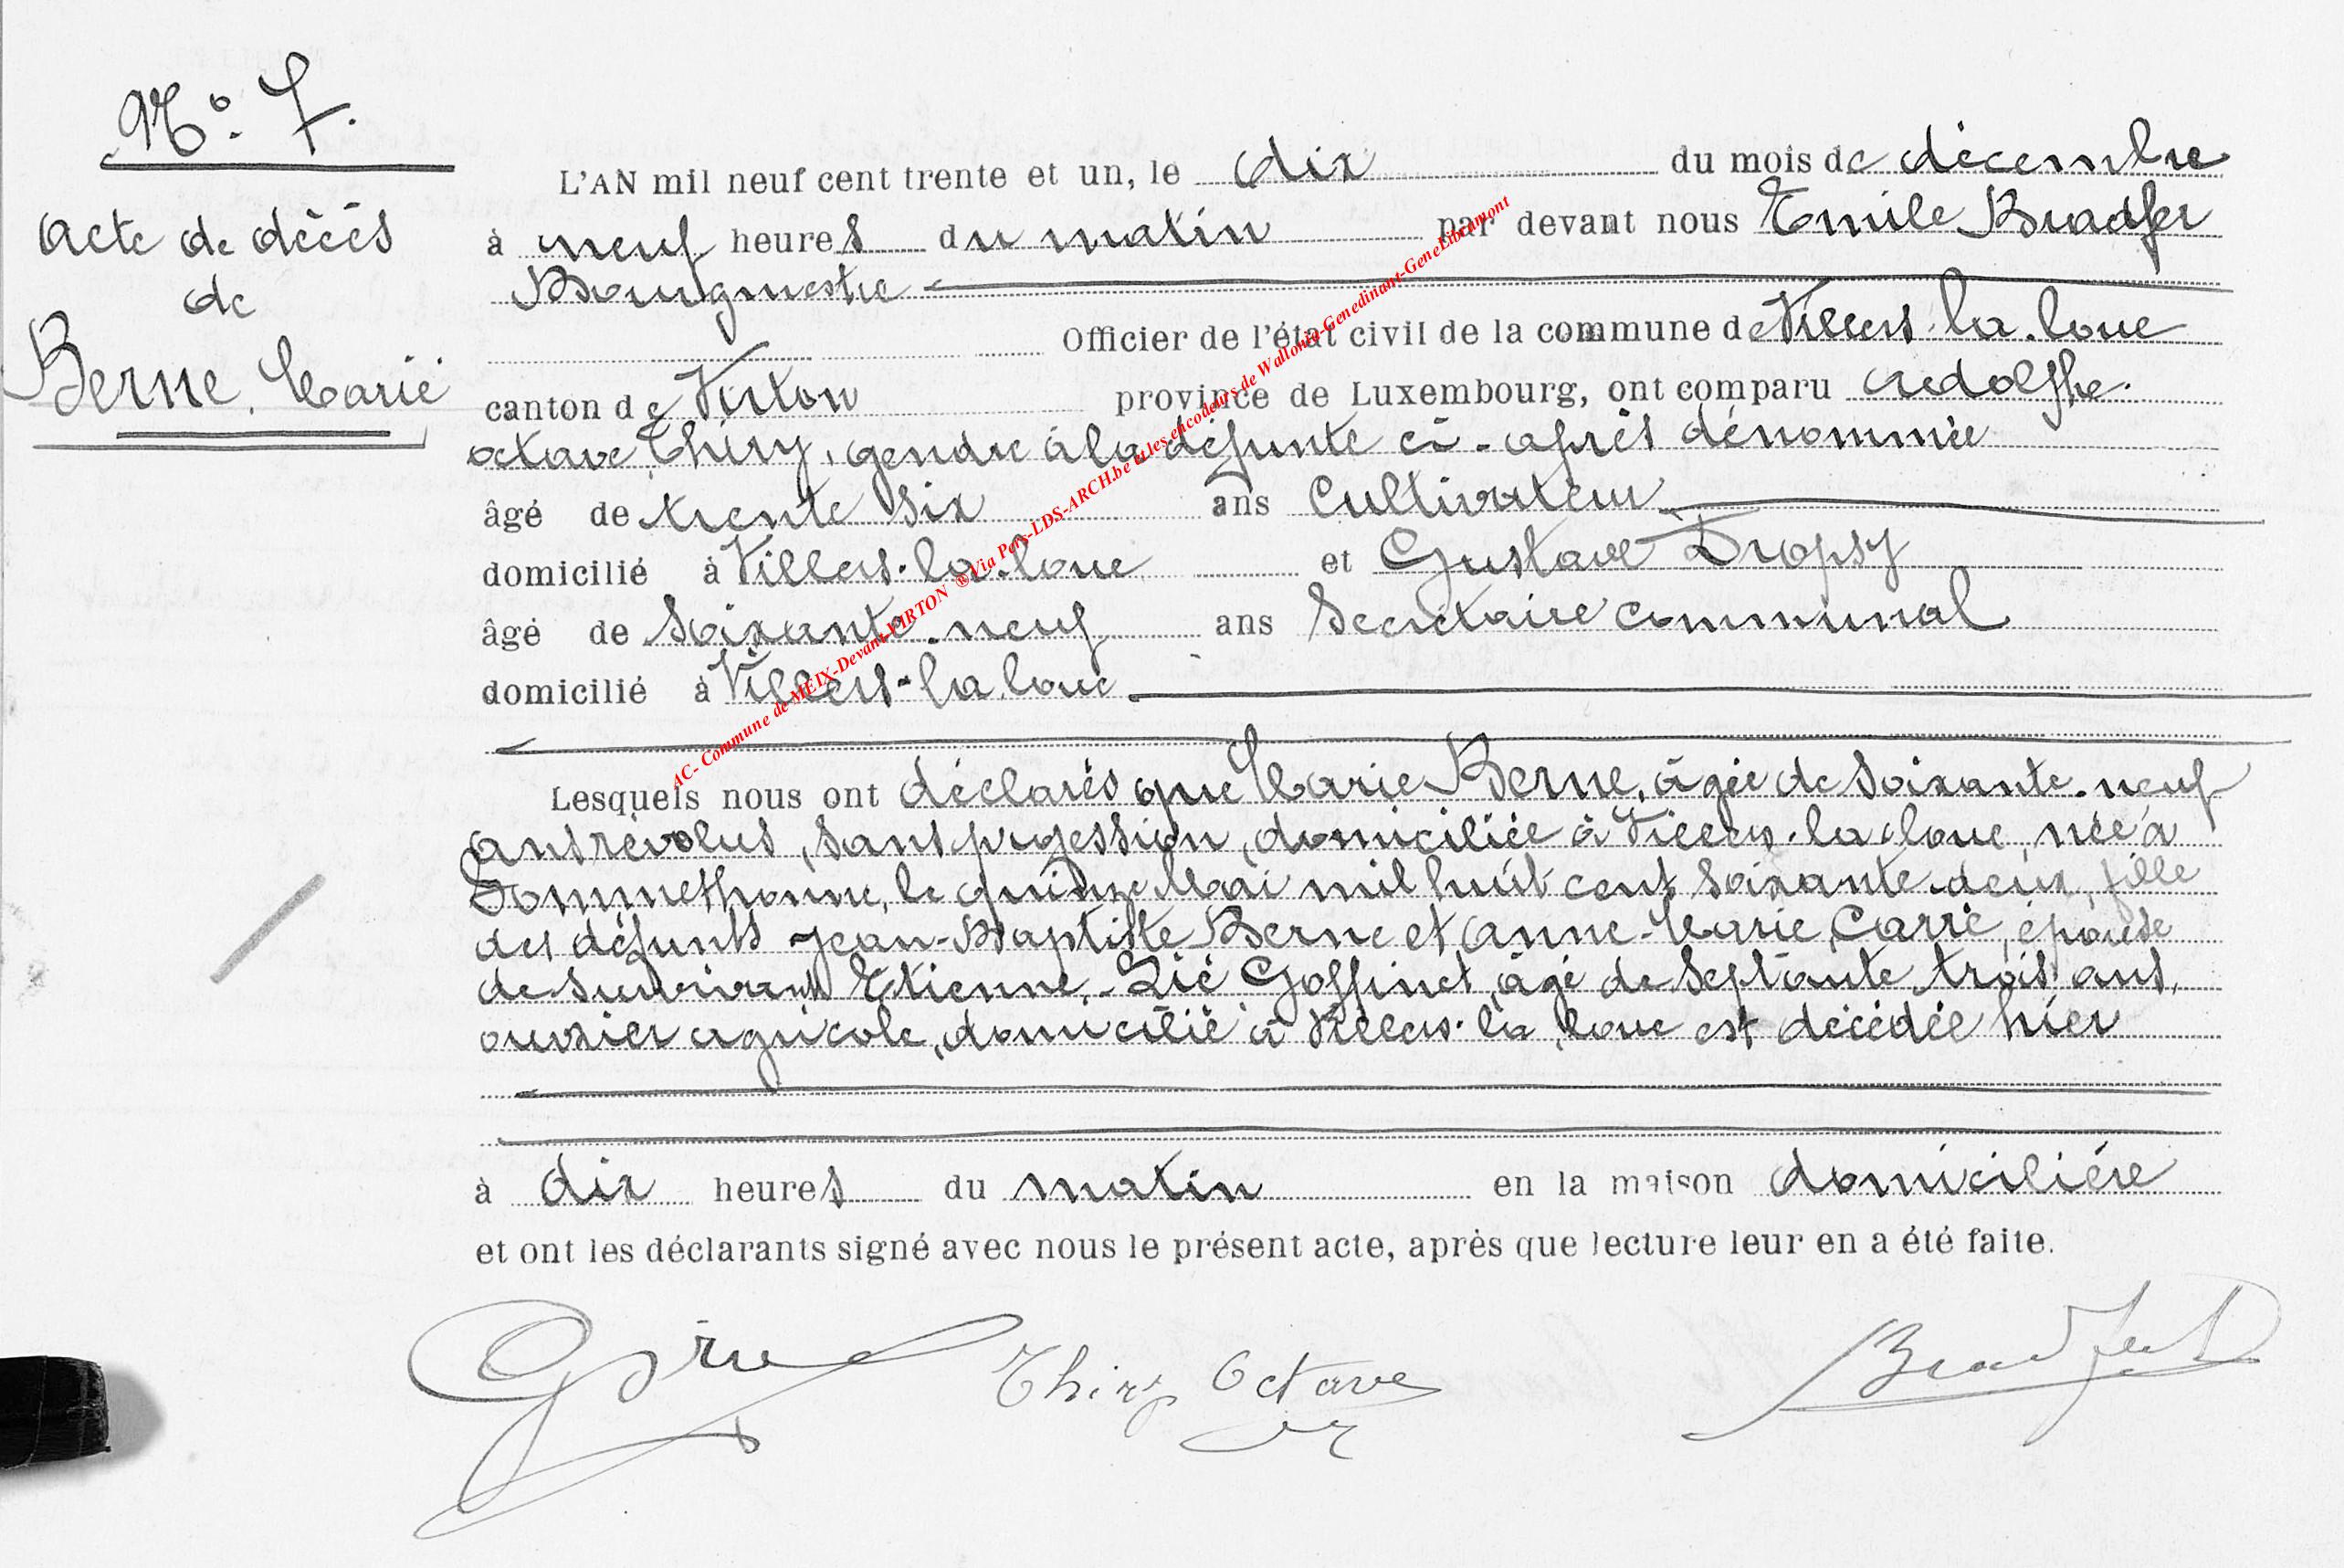 No 7.
Acte de décès
de
Berne, Marie
L'AN mil neuf cent trente et un, le dix du mois de décembre
à neuf heures du matin par devant nous Emile Bradfer
Bourgmestre
Officier de l'état civil de la commune de Villers-la-loue
canton de Virton province de Luxembourg, ont comparu Adolphe
octave Thiry, gendre à la défunte ci-après dénommée
âgé de trente six ans Cultivateur
domicilié à Villers-la-loue et Gustave Dropsy
âgé de soixante-neuf ans Secrétaire communal
domicilié à Villers-la loue
Lesquels nous ont déclarés que Marie Berne, âgée de soixante-neuf
ans révolus, sans profession, domiciliée à Villers-la-loue, née à
Sommethonne, le quinze Mai mil huit cent soixante-deux, fille
des défunts Jean-Baptiste Berne et Anne-Marie Carré, épouse
de survivant Etienne-Lié Goffinet, âgé de septante trois ans,
ouvrier agricole, domicilié à Villers-la loue est décédée hier
à dix heures du matin en la maison domiciliére
et ont les déclarants signé avec nous le présent acte, après que lecture leur en a été faite.
Thiry Octave
Bradfer
AC- Commune de MEIX-Devant-VIRTON ® Via Pars-LDS-ARCH.be et les encodeurs de Wallonia-Genedinant-GeneLibramont